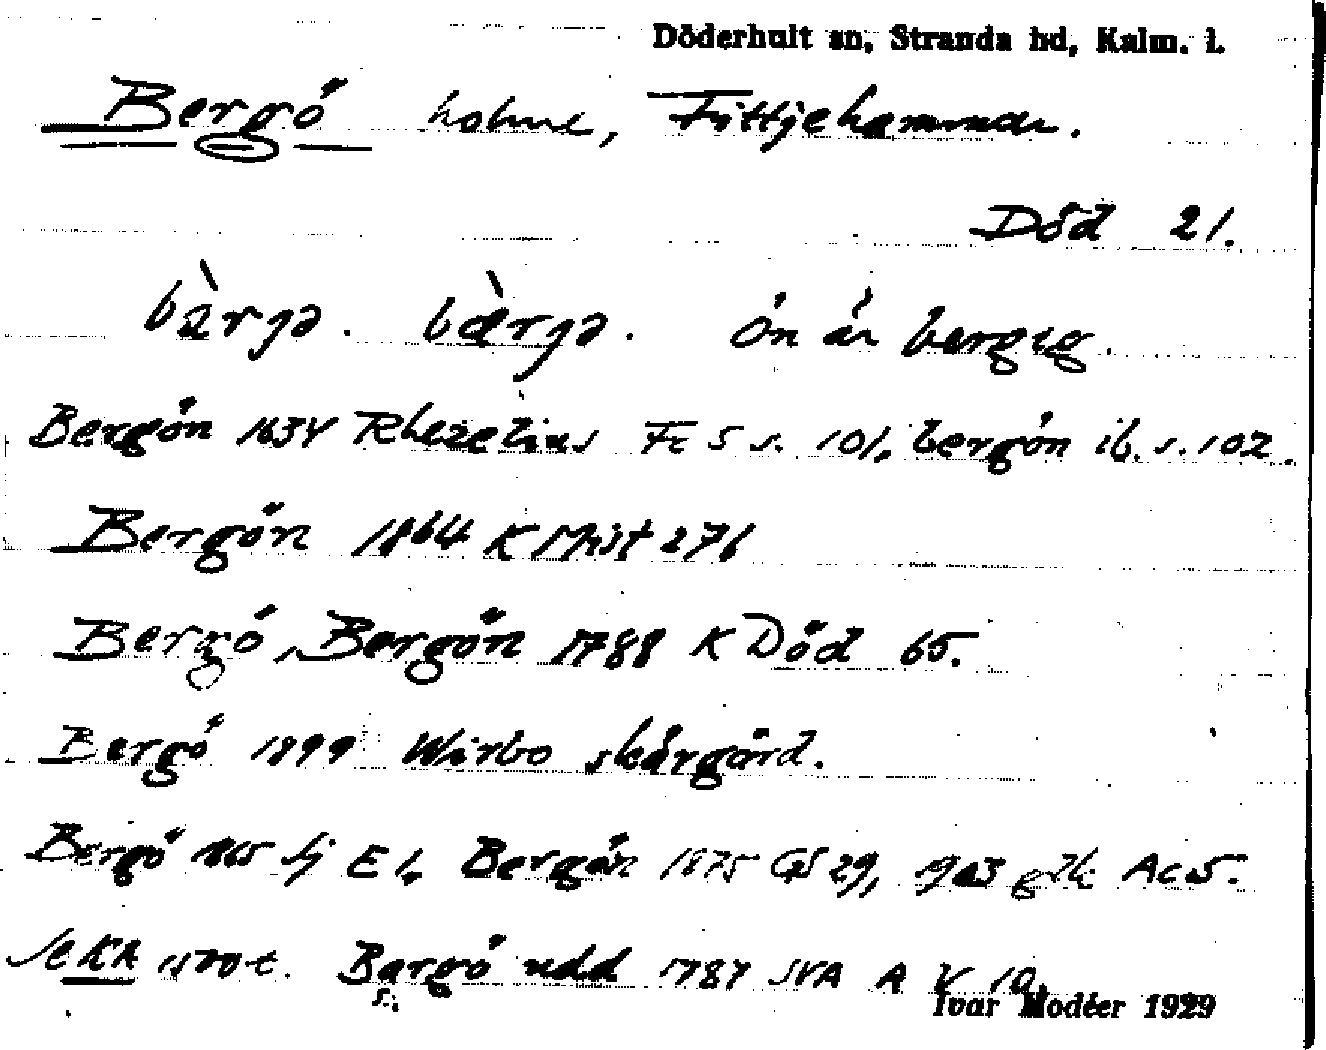 Döderhult sn, Stranda hd, Kalm. l.
Bergö holme, Fittjehammar.
Död 21.
bàrgə. bæ̀rgə. Ön är bergig.
Bergön 1634 Rhezelius Fc 5 s. 101, bergön ib. s. 102.
Bergön 1864 K Mist 276
Bergö, Bergön 1788 K Död 65.
Bergö 1899 Wirbo skärgård.
Bergö 1865 Sj E 1, Bergön 1875 GS 29, Ac 5.
Se KA 1500-t. Bergö udd 1787 SVA A V 10.
Ivar Modéer 1929